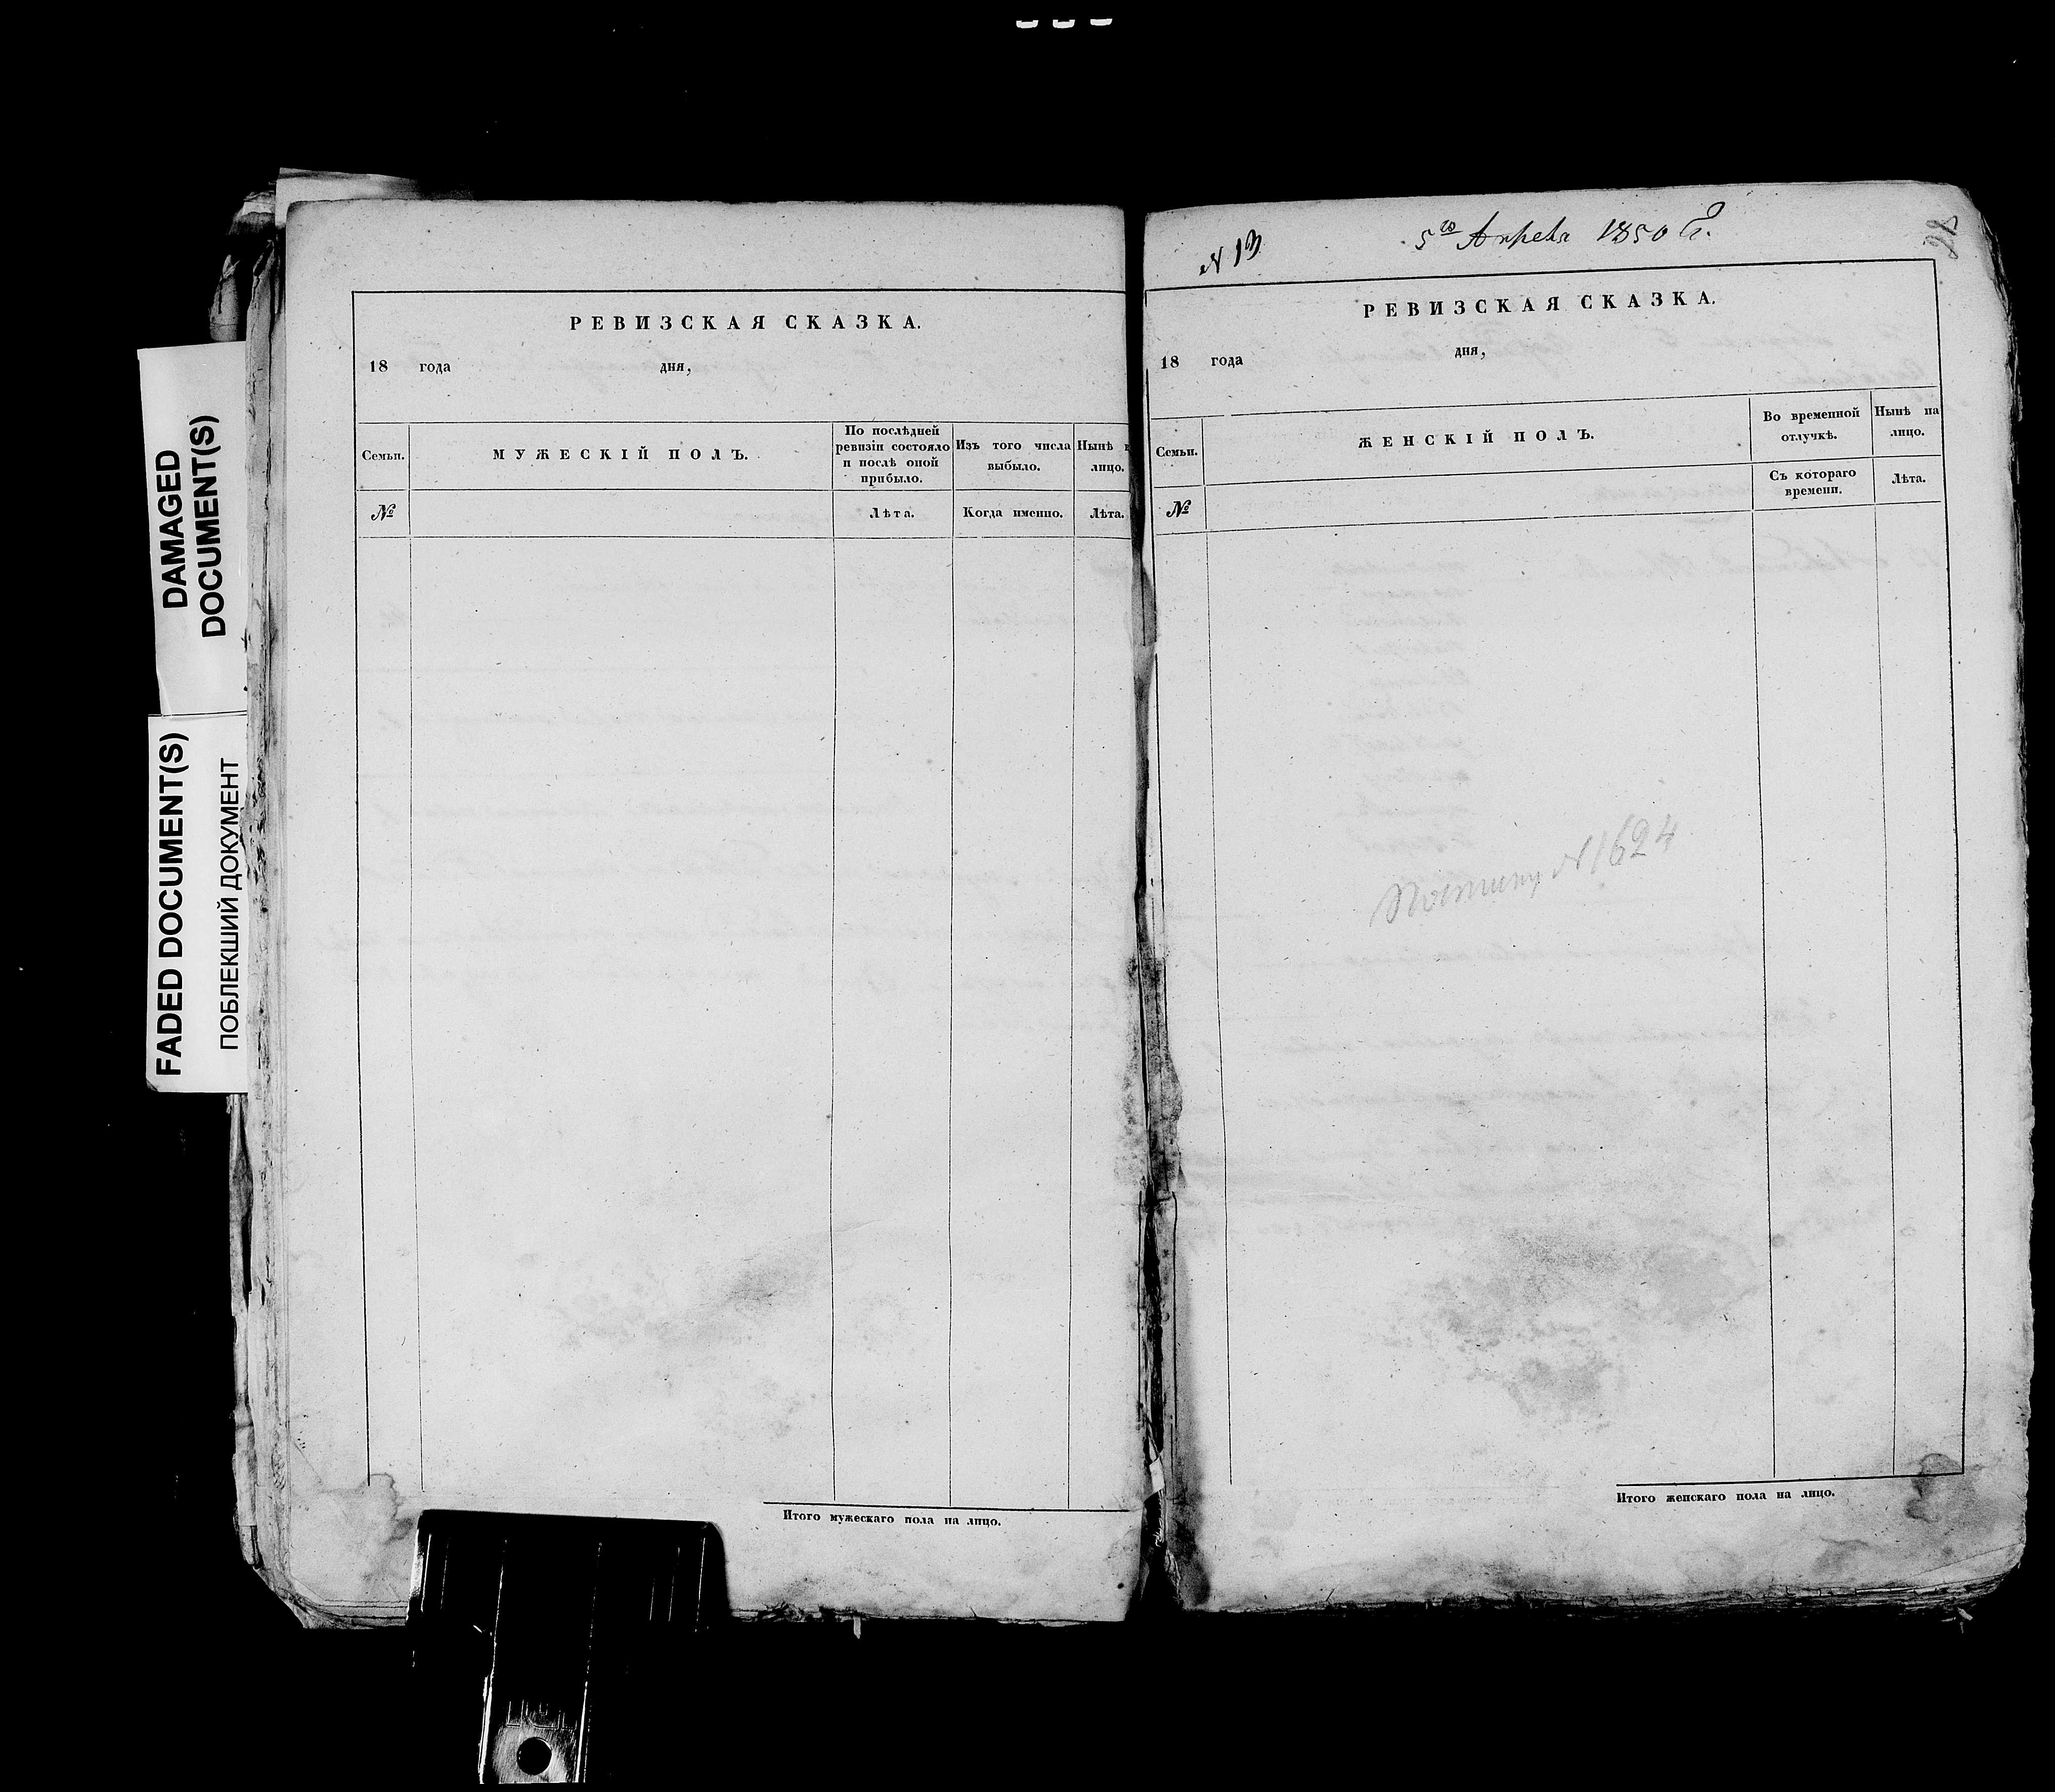 DAMAGED
DOCUMENT(S)
FADED DOCUMENT(S)
ПОБЛЕКШИЙ ДОКУМЕНТ
РЕВИЗСКАЯ СКАЗКА.
18 года дня,
Семьи.
МУЖЕСКІЙ ПОЛЪ.
По послѣдней
ревизіи состояло
и послѣ оной
прибыло.
Изъ того числа
выбыло.
Нынѣ
лицо.
№
Лѣта.
Когда именно.
Лѣта.
Итого мужескаго пола на лицо.
N 13
5го Апреля 1850 г.
РЕВИЗСКАЯ СКАЗКА.
18 года дня,
Семьи.
ЖЕНСКІЙ ПОЛЪ.
Во временной
отлучкѣ.
Нынѣ на
лицо.
№
Съ котораго
времени.
Лѣта.
N 1624
Итого женскаго пола на лицо.